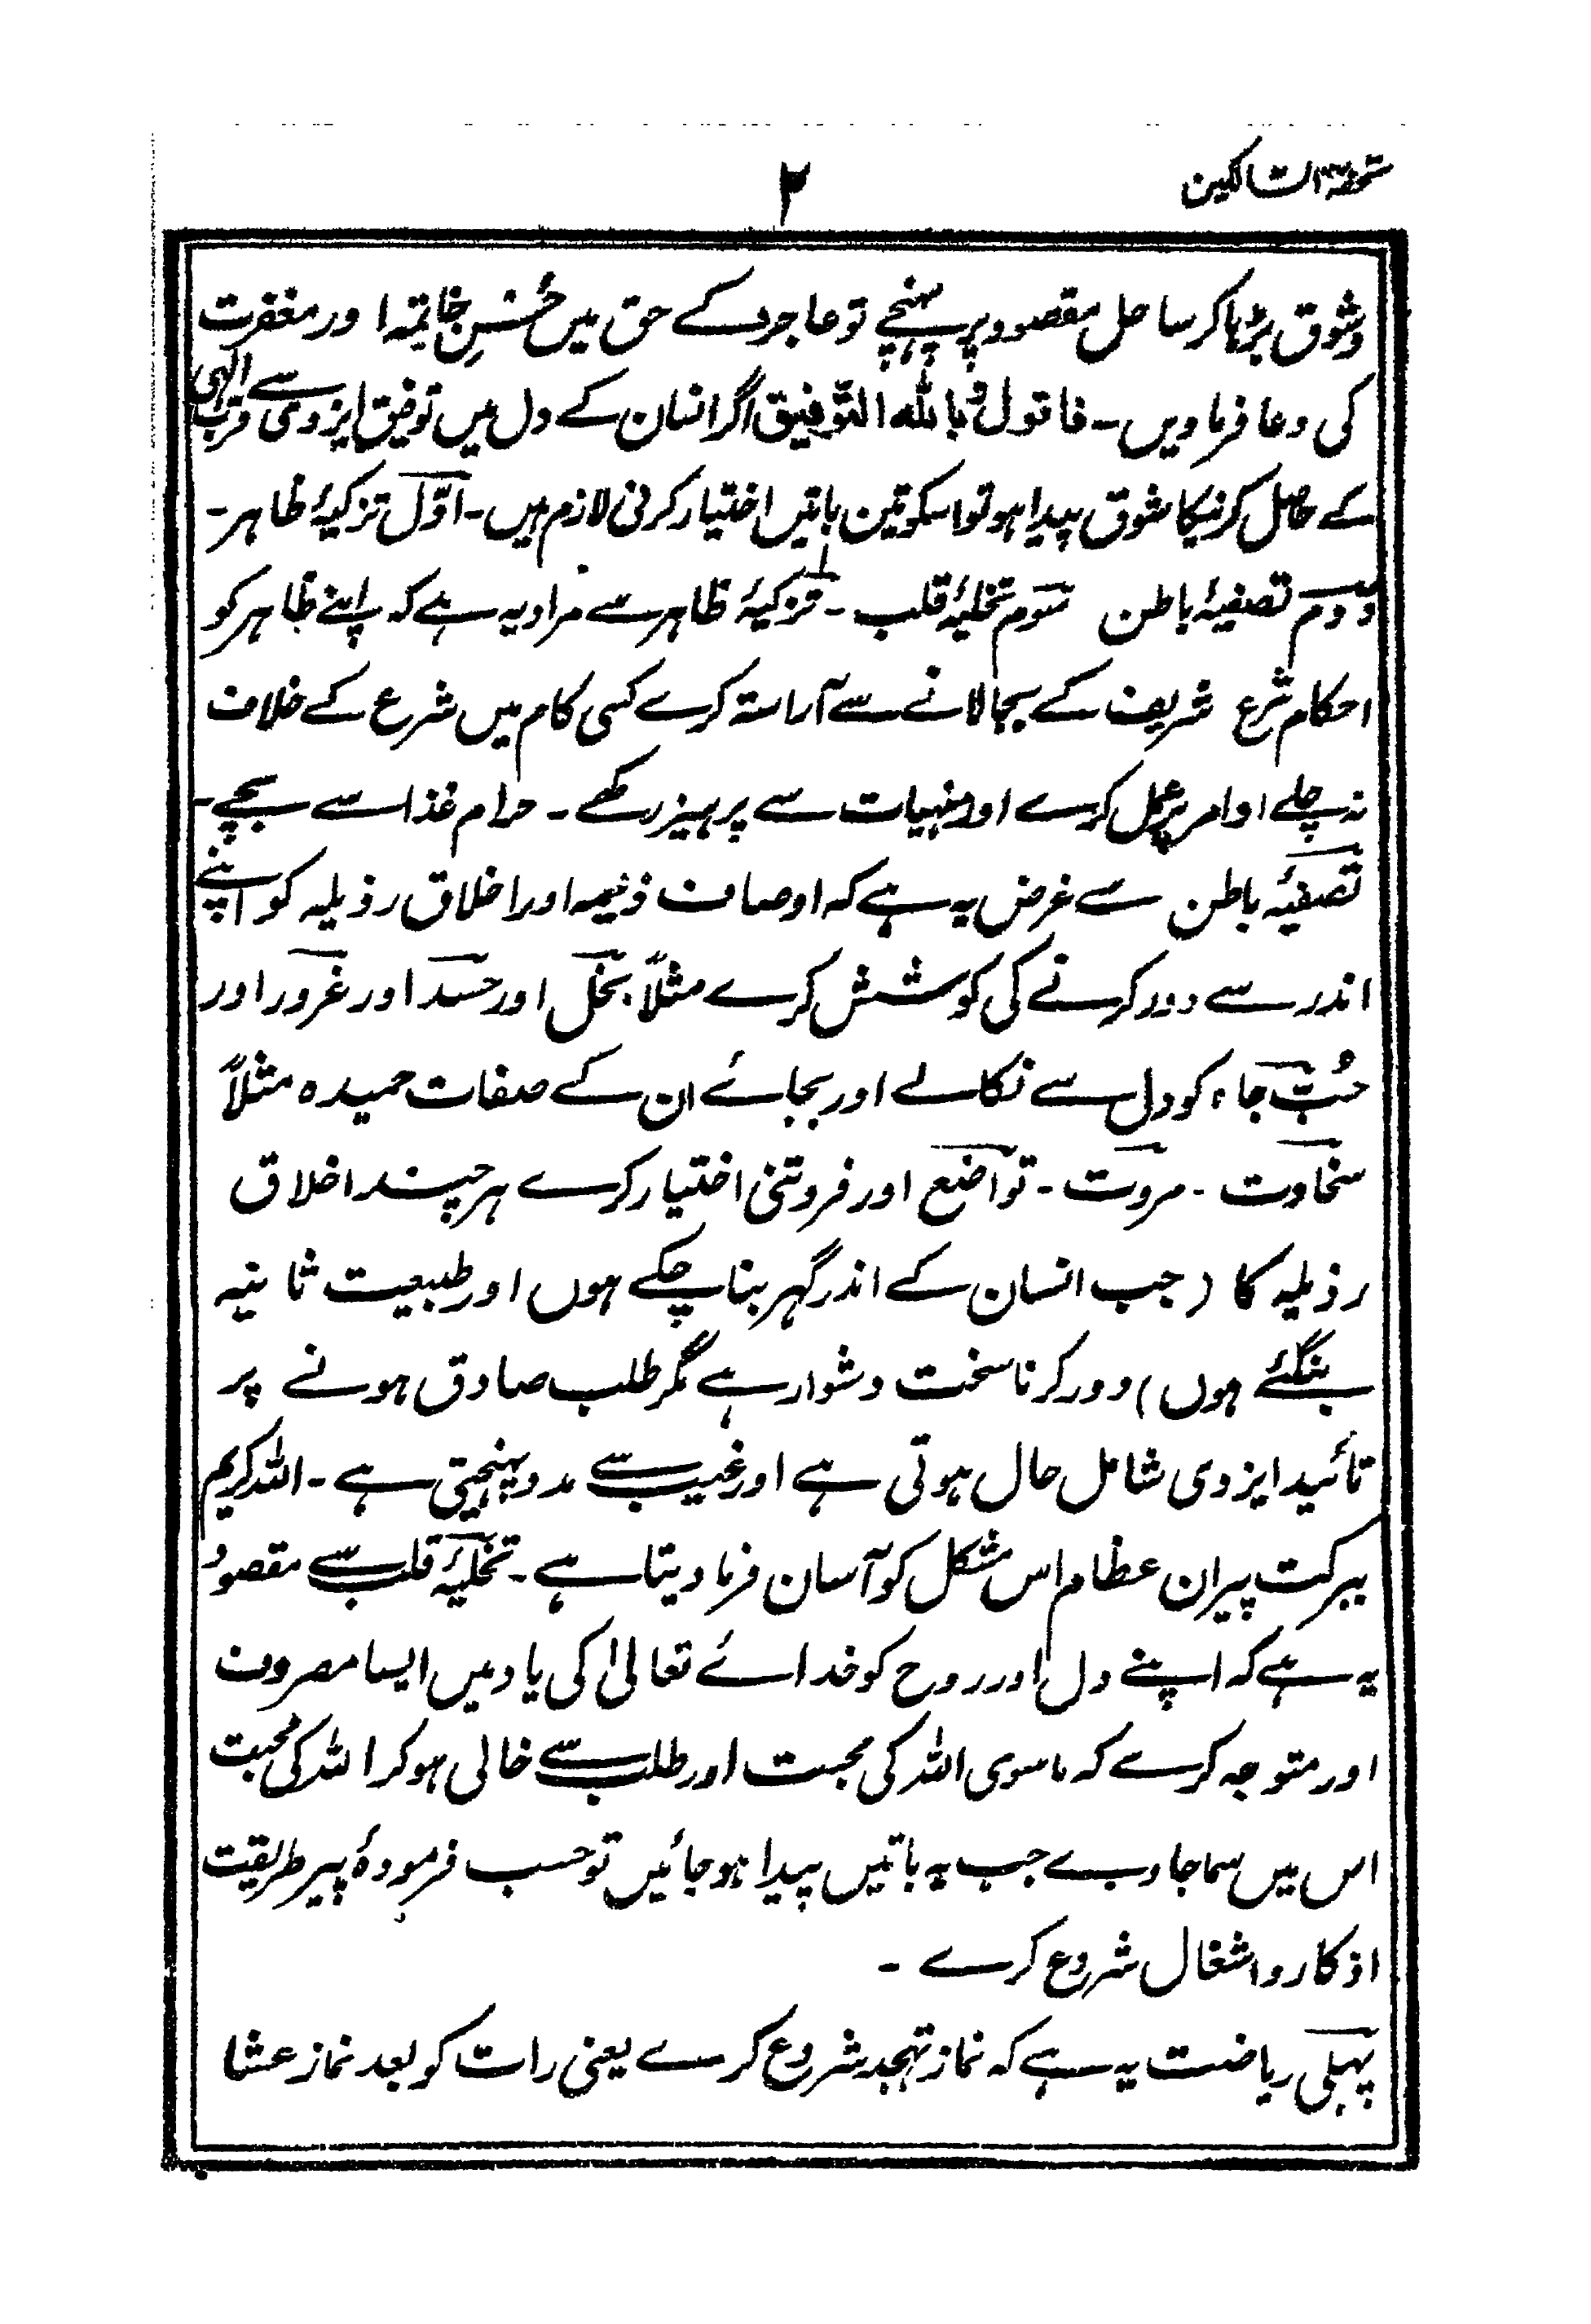 تحفۃ السالکین
۲
وشوق بڑہاکر ساحل مقصود پر پہنچے تو عاجز کے حق میں حُسنِ خاتمہ اور مغفرت
کی دعا فرماویں۔ فاقول وُباللہ التّوفیق اگر انسان کے دل میں توفیق ایزدی سے قرب الٰہی
کے حاصل کرنیکا شوق پیدا ہو تو اسکو تین باتیں اختیار کرنی لازم ہیں۔ اوّل تزکیۂ ظاہر۔
دوم تصفیۂ باطن سوم تخلیۂ قلب۔ تزکیۂ ظاہر سے مراد یہ ہے کہ اپنے ظاہر کو
احکام شرع شریف کے بجا لانے سے آراستہ کرے کسی کام میں شرع کے خلاف
نہ چلے اوامر پر عمل کرے اور منہیات سے پرہیز رکھے۔ حرام غذا سے بچے۔
تصفیۂ باطن سے غرض یہ ہے کہ اوصاف ذمیمہ اور اخلاق رذیلہ کو اپنے
اندر سے دور کرنے کی کوشش کرے مثلاً بخل اور حسد اور غرور اور
حُبّ جاہ کو دل سے نکالے اور بجائے ان کے صفات حمیدہ مثلاً
سخاوت۔ مروت۔ تواضع اور فروتنی اختیار کرے ہر چند اخلاق
رذیلہ کا (جب انسان کے اندر گہر بنا چکے ہوں اور طبیعت ثانیہ
بنگئے ہوں) دور کرنا سخت دشوار ہے مگر طلب صادق ہونے پر
تائید ایزدی شامل حال ہوتی ہے اور غیب سے مدد پہنچتی ہے۔ اللہ کریم
ببرکت پیران عظام اس مشکل کو آسان فرما دیتا ہے۔ تخلیۂ قلب سے مقصود
یہ ہے کہ اپنے دل اور روح کو خدائے تعالیٰ کی یاد میں ایسا مصروف
اور متوجہ کرے کہ ماسوی اللہ کی محبت اور طلب سے خالی ہو کر اللہ کی محبت
اس میں سما جاوے جب یہ باتیں پیدا ہو جائیں تو حسب فرمودۂ پیر طریقت
اذکار و اشغال شروع کرے۔
پہلی ریاضت یہ ہے کہ نماز تہجد شروع کرے یعنی رات کو بعد نماز عشا